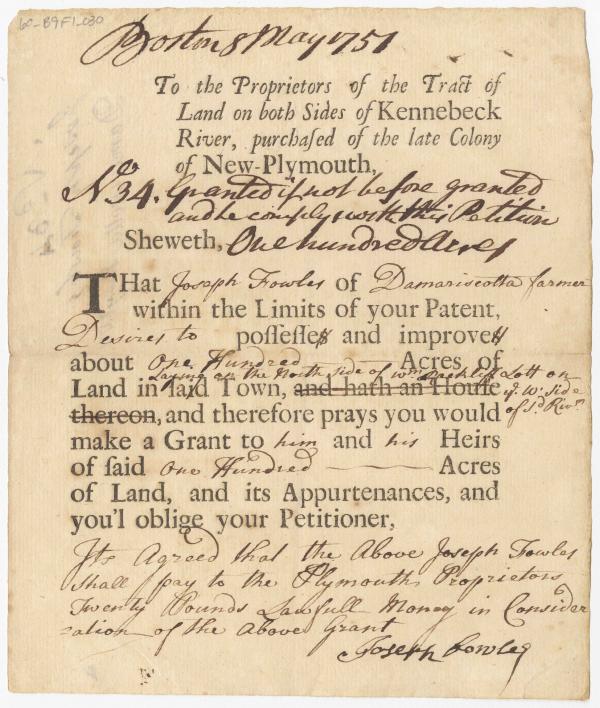 60-B9F1-030
Boston 8 May 1751
To the Proprietors of the Tract of
Land on both Sides of Kennebeck
River, purchaſed of the late Colony
of New-Plymouth,
No 34. Granted if not before granted
and he comply with this Petition
Sheweth, One hundred Acres
THat Joseph Fowles of Damariscotta farmer
within the Limits of your Patent,
Desires to poſſeſſes and improves
about One Hundred Acres of
Laying on the North side of Wm Lott on
Land in ſaid Town, and hath an Houſe ye Wt Side
thereon, and therefore prays you would of sd Rivr
make a Grant to him and his Heirs
of ſaid One Hundred Acres
of Land, and its Appurtenances, and
you'l oblige your Petitioner,
Its Agreed that the Above Joseph Fowles
Shall pay to the Plymouth Proprietors
Twenty Pounds Lawfull Money in Consider
ation of the Above Grant
Joseph Fowles